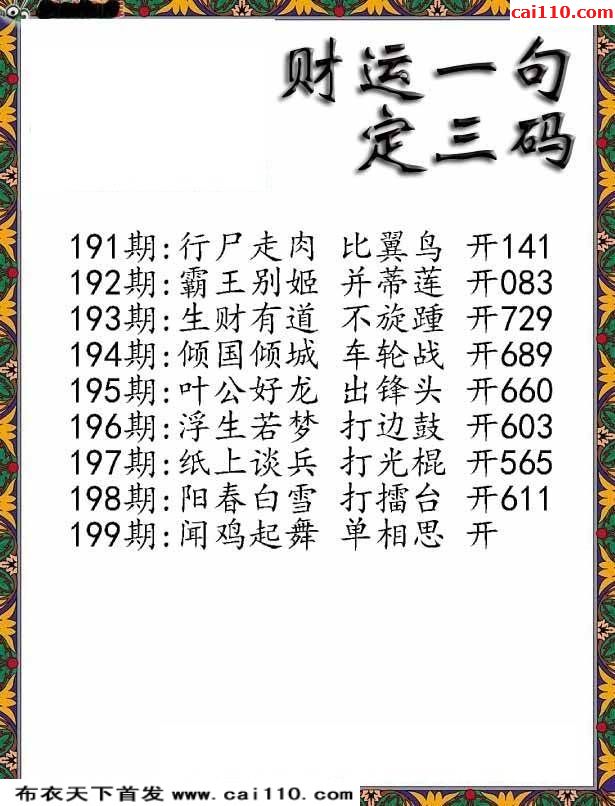 cai110.com
财运一句
定三码
191期:行尸走肉 比翼鸟 开141
192期:霸王别姬 并蒂莲 开083
193期:生财有道 不旋踵 开729
194期:倾国倾城 车轮战 开689
195期:叶公好龙 出锋头 开660
196期:浮生若梦 打边鼓 开603
197期:纸上谈兵 打光棍 开565
198期:阳春白雪 打擂台 开611
199期:闻鸡起舞 单相思 开
布衣天下首发 www.cai110.com